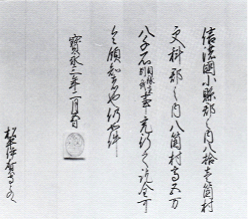 信濃國小縣郡之内八拾壱箇村
更科郡之内八箇村高五万
八千石目録在別紙事充行之訖全可
令領知者也仍如件
寳永三年二月
松平伊賀守とのへ